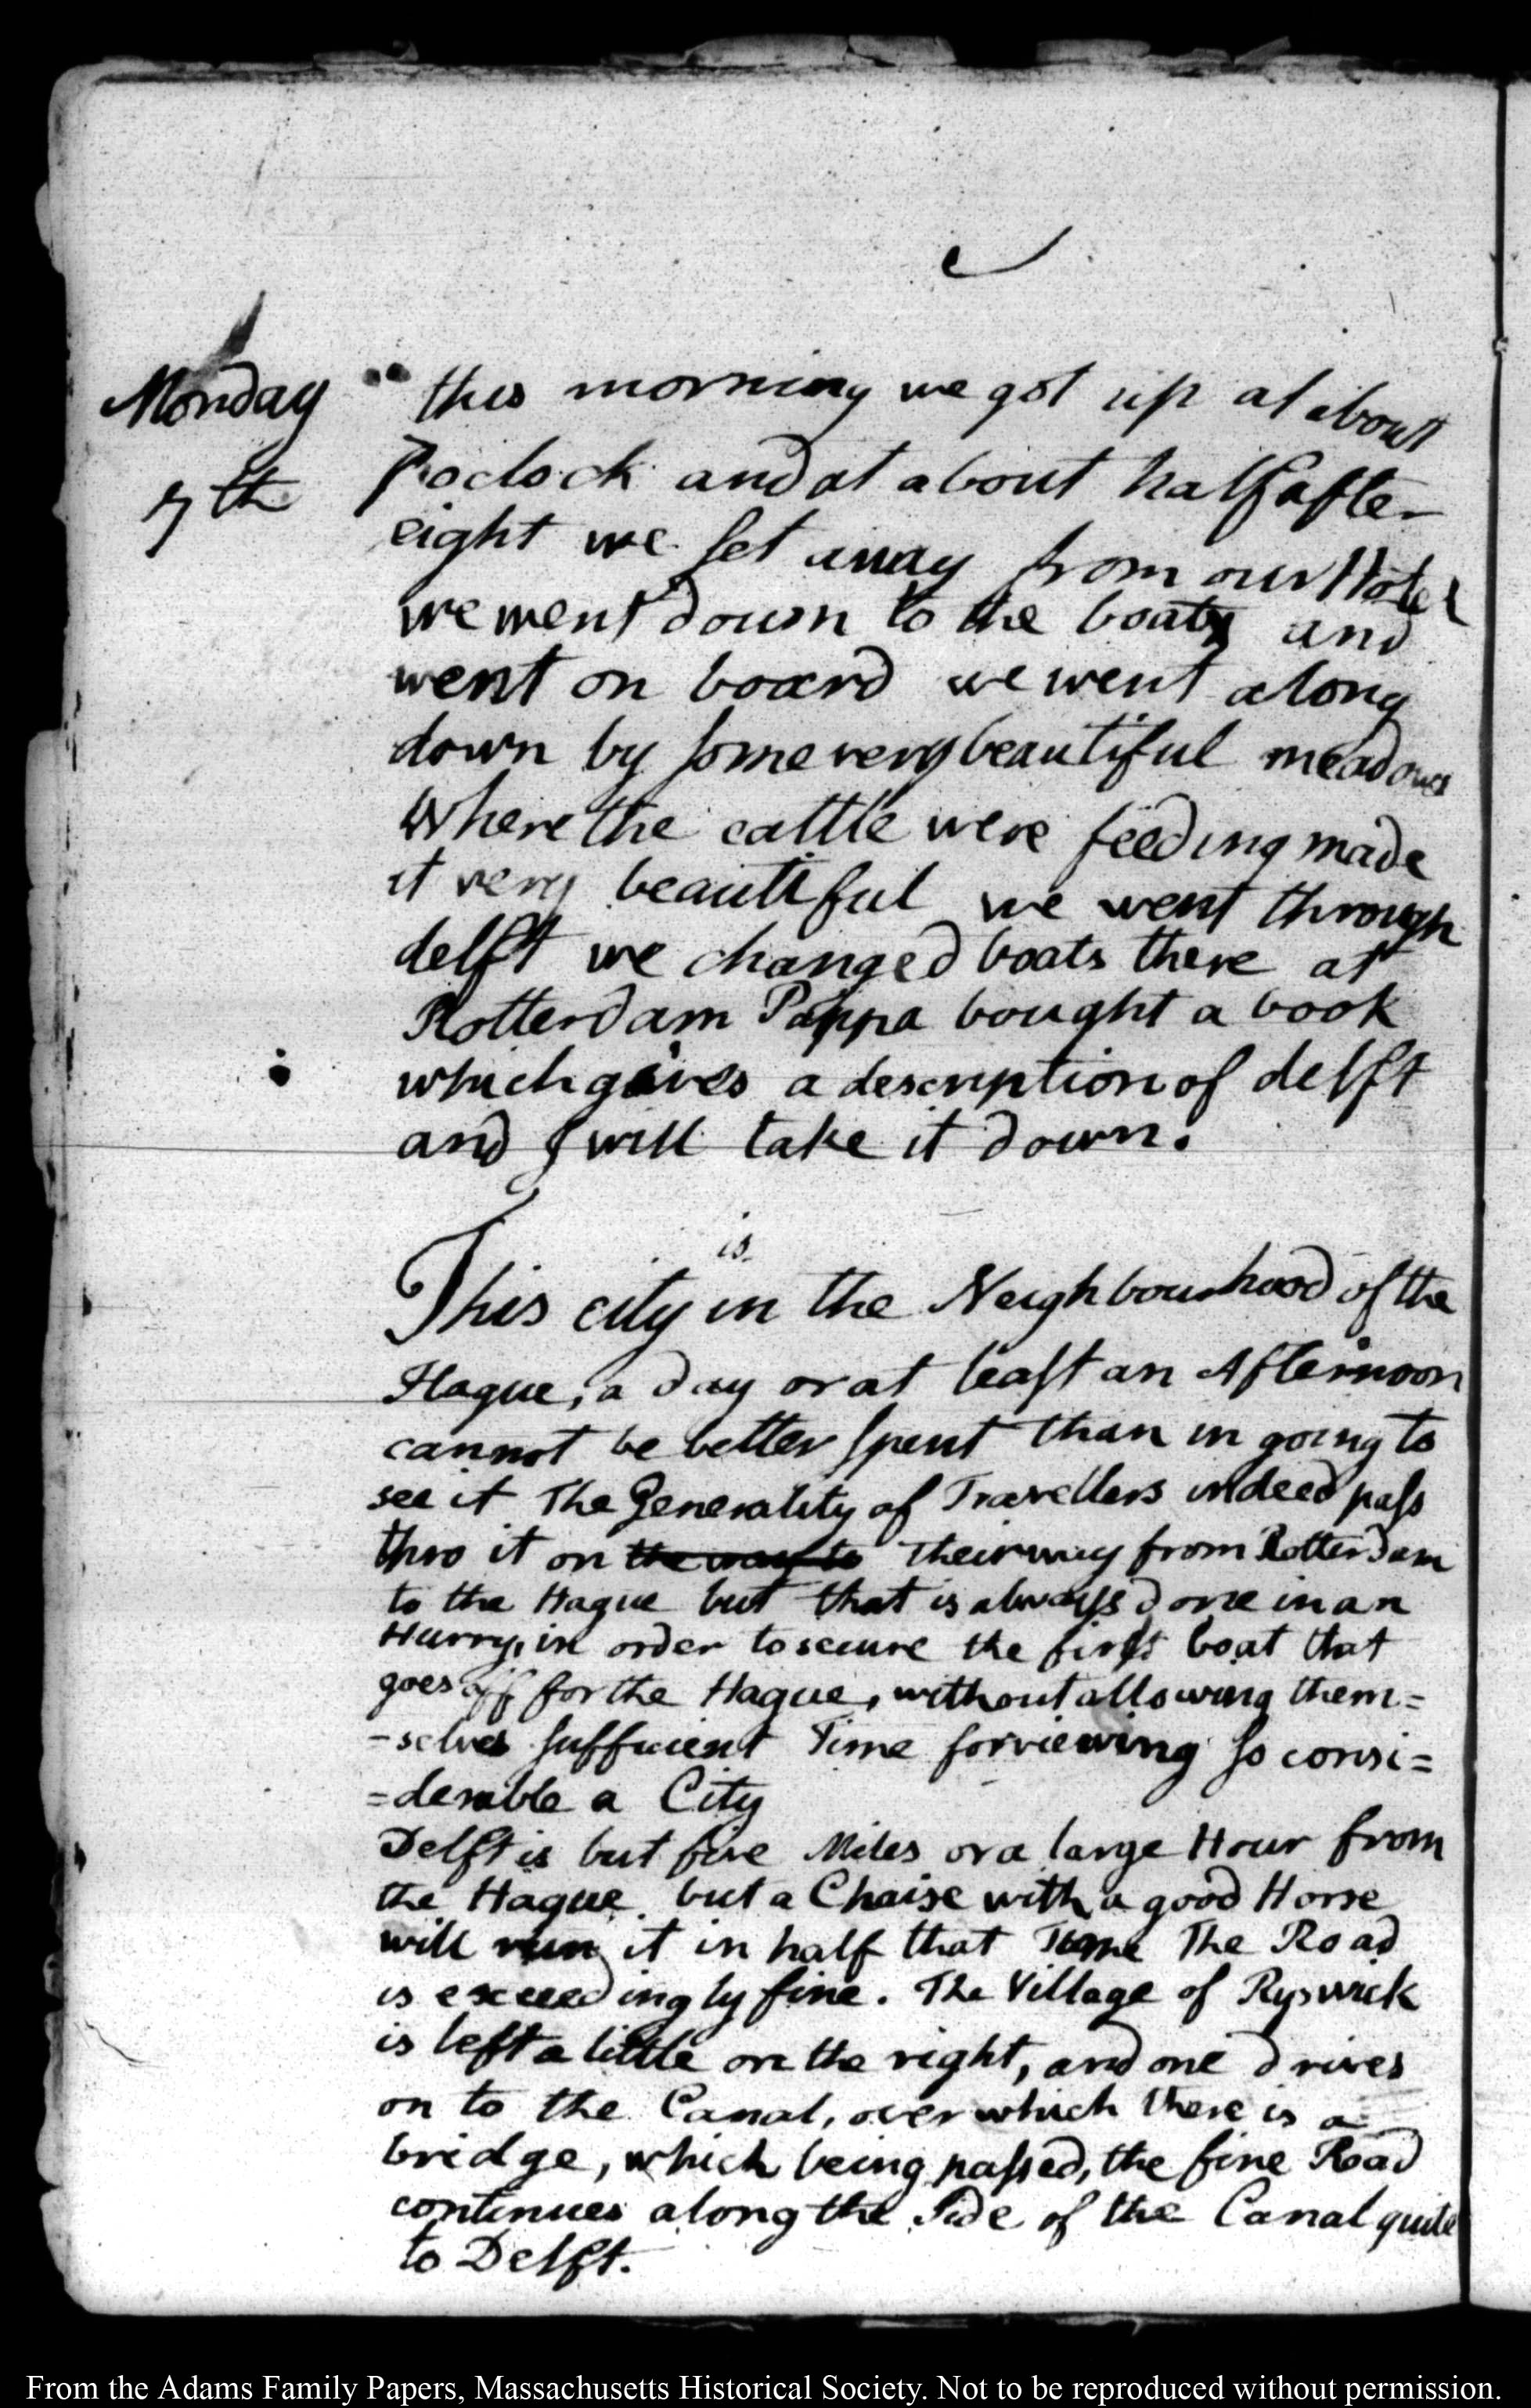 Monday
7th
this morning we got up at about
7 oclock and at about half after
eight we set away from our Hotel
we went down to the boats and
went on board we went along
down by some very beautiful meadows
where the cattle were feeding made
it very beautiful we went through
delft we changed boats there at
Rotterdam Pappa bought a book
which gives a description of delft
and I will take it down.
is
This city in the Neighbourhood of the
Hague, a day or at least an Afternoon
cannot be better spent than in going to
see it The Generality of Travellers indeed pass
thro it on the way to Their way from Rotterdam
to the Hague but that is always done in an
Hurry, in order to secure the first boat that
goes off for the Hague, without allowing them=
-selves sufficient Time for viewing so consi=
=derable a City
Delft is but five Miles or a large Hour from
the Hague but a Chaise with a good Horse
will run it in half that Time The Road
is exceedingly fine. The Village of Ryswick
is left a little on the right, and one drives
on to the Canal, over which there is a
bridge, which being passed, the fine Road
continues along the Side of the Canal quite
to Delft.
From the Adams Family Papers, Massachusetts Historical Society. Not to be reproduced without permission.